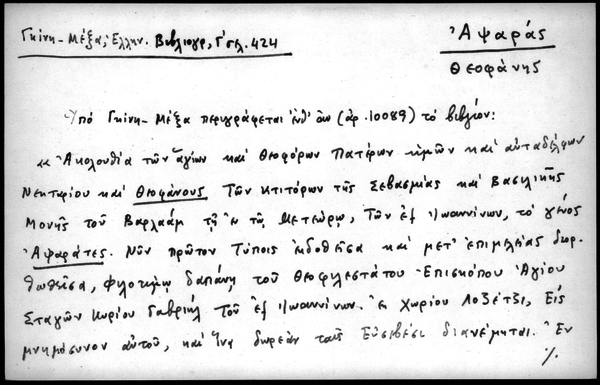 Γκίνη - Μέξα, Ἑλλην. Βιβλιογρ, Γ' σελ. 424
Ἀψαρᾶς
Θεοφάνης
Ὑπό Γκίνη - Μέξα περιγράφεται (ἀρ. 10089) τό βιβλίον:
«Ἀκολουθία τῶν ἁγίων καί θεοφόρων Πατέρων ἡμῶν καί αὐταδέλφων
Νεκταρίου καί Θεοφάνους Τῶν κτιτόρων τῆς Σεβασμίας καί Βασιλικῆς
Μονῆς τοῦ Βαρλαάμ τῆς ἐν τῷ Μετεώρῳ, Τῶν ἐξ Ἰωαννίνων, τό γένος
Ἀψαράτες. Νῦν πρῶτον Τύποις ἐκδοθεῖσα καί μετ' ἐπιμελείας διορ-
θωθεῖσα, φιλοτίμῳ δαπάνῃ τοῦ Θεοφιλεστάτου Ἐπισκόπου Ἁγίου
Σταγῶν Κυρίου Γαβριήλ Τοῦ ἐξ Ἰωαννίνων. Ἐκ χωρίου Λοζέτζι, Εἰς
μνημόσυνον αὐτοῦ, καί ἵνα δωρεάν τοῖς Εὐσεβέσι διανέμηται. Ἐν
./.